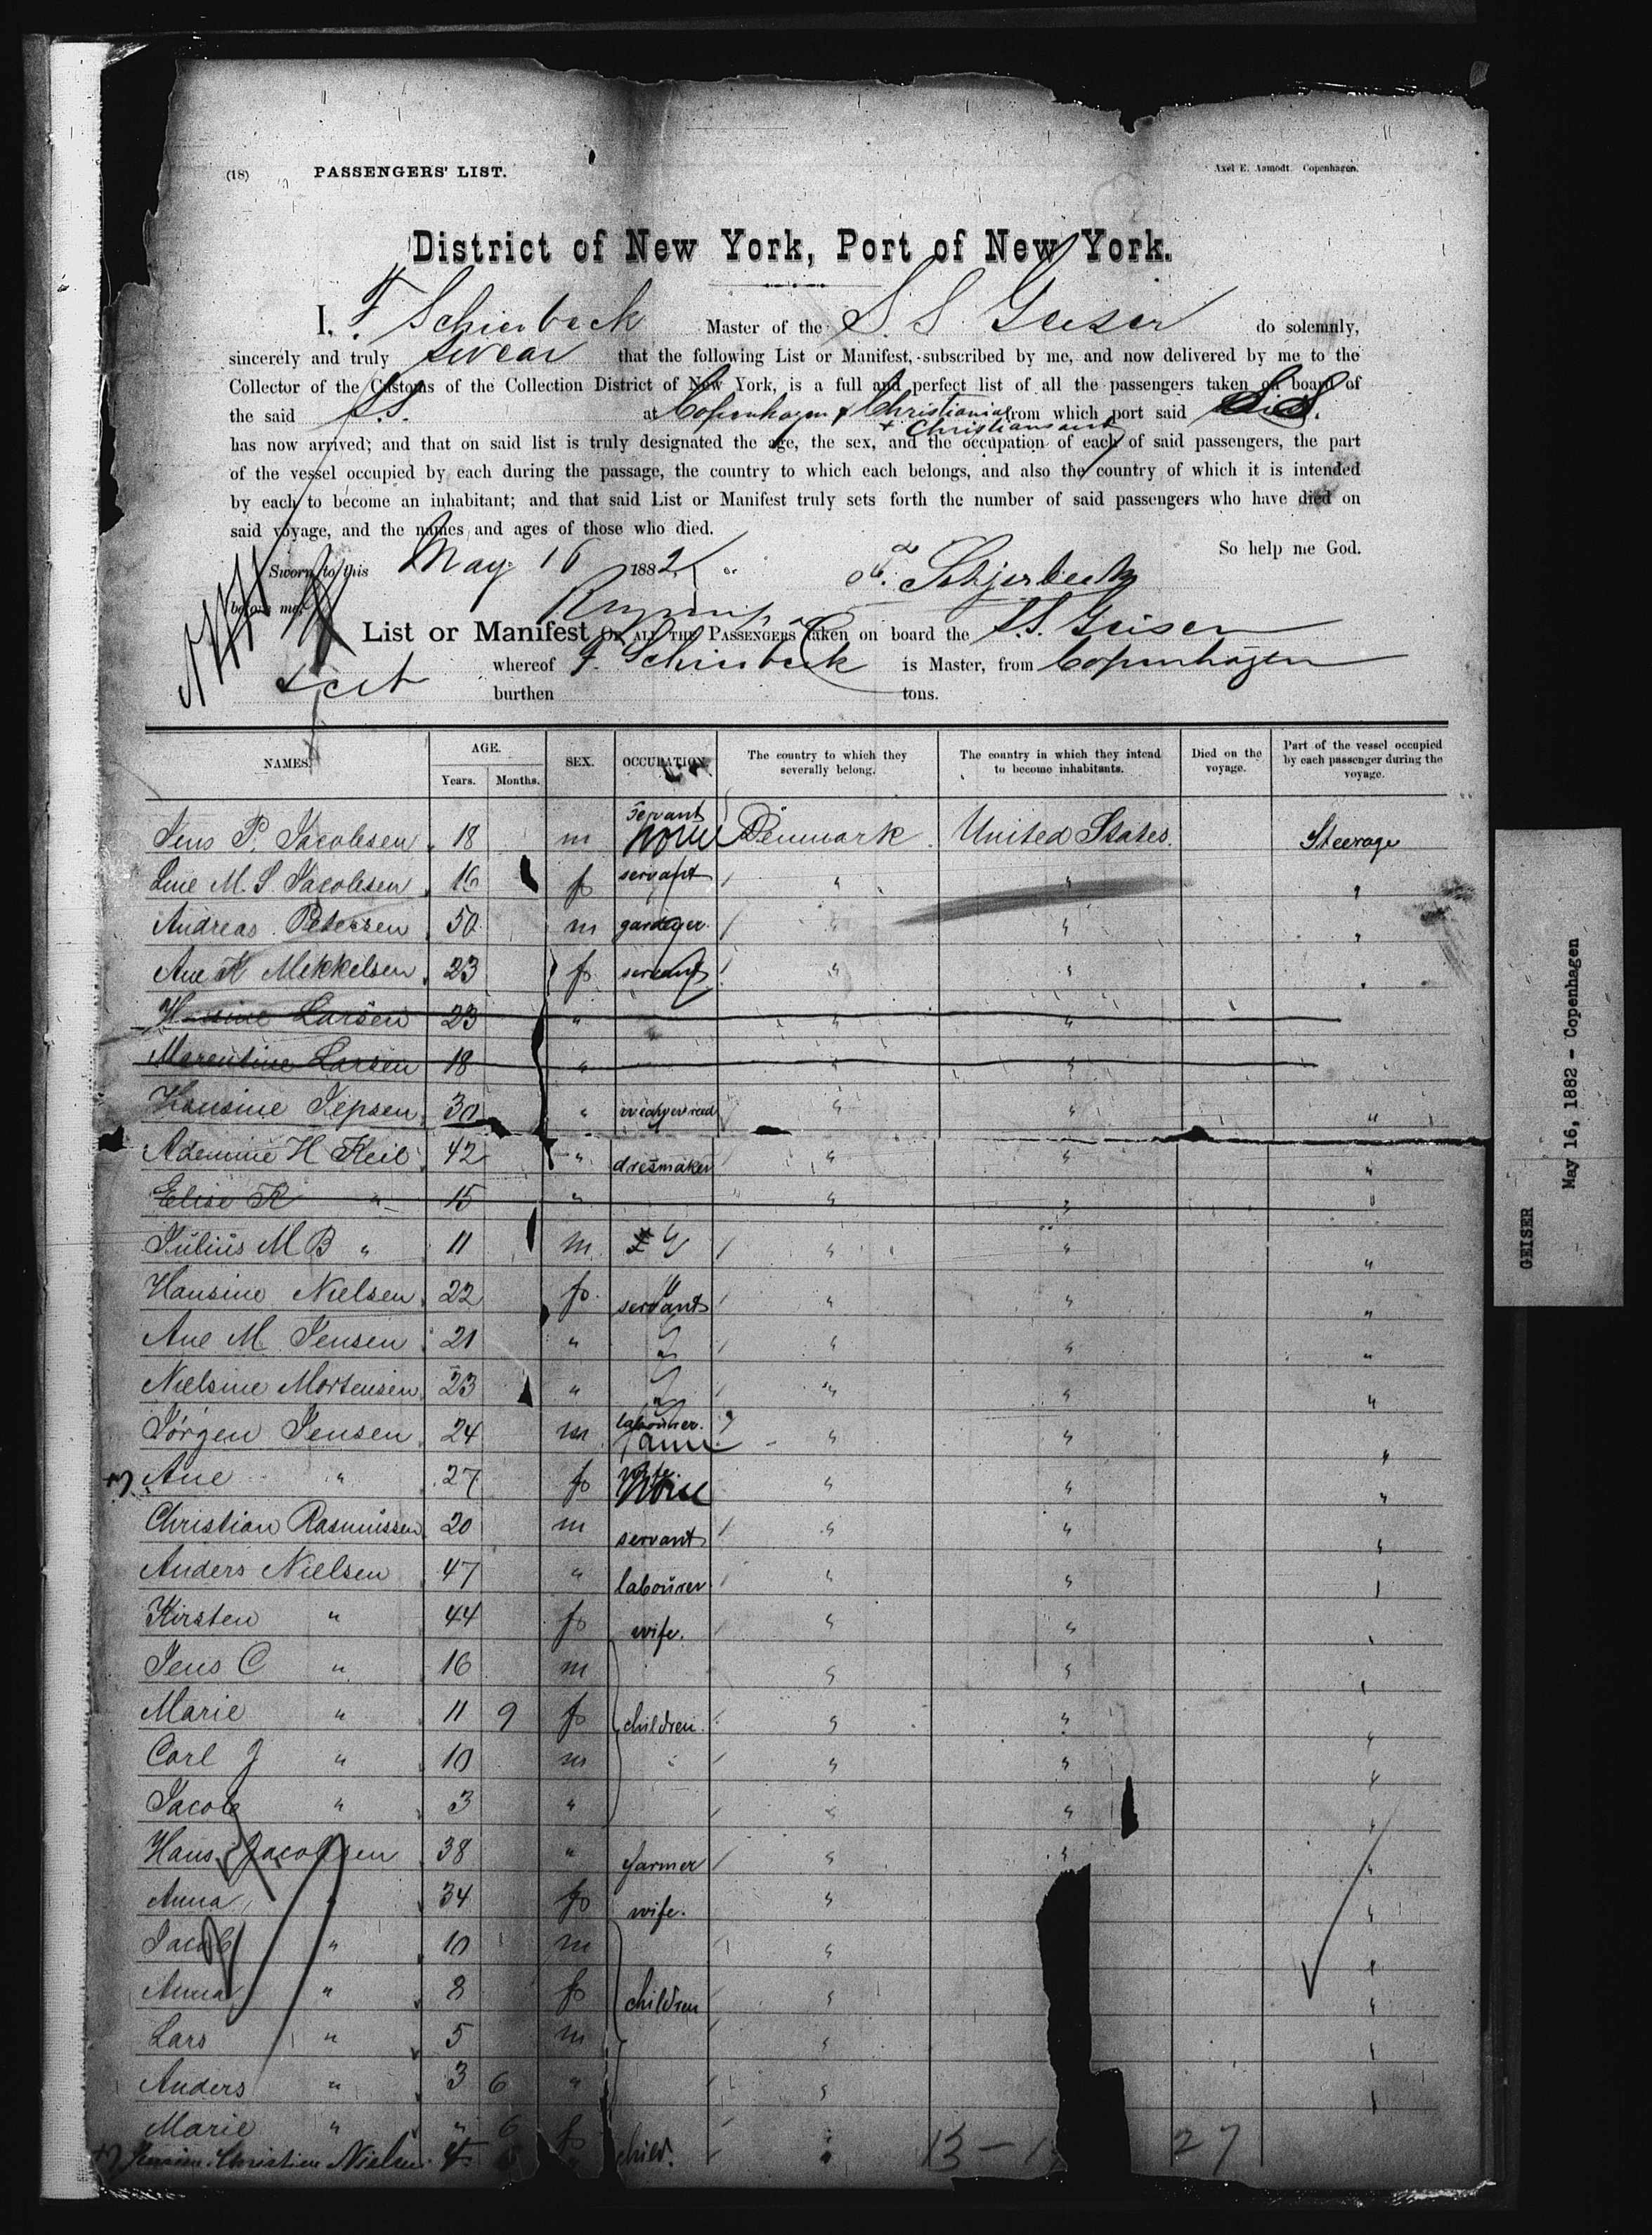 (18) PASSENGERS' LIST. Axel E. Aamodt. Copenhagen.
District of New York, Port of New York.
I, F Schierbeck Master of the S. S. Geiser do solemnly,
sincerely and truly swear that the following List or Manifest, subscribed by me, and now delivered by me to the
Collector of the Customs of the Collection District of New York, is a full and perfect list of all the passengers taken on board of
the said S.S. at Copenhagen & Christiania from which port said S.S.
+ Christiansand
has now arrived; and that on said list is truly designated the age, the sex, and the occupation of each of said passengers, the part
of the vessel occupied by each during the passage, the country to which each belongs, and also the country of which it is intended
by each to become an inhabitant; and that said List or Manifest truly sets forth the number of said passengers who have died on
said voyage, and the names and ages of those who died.
So help me God.
Sworn to this May 16 1882
before me, Schjerbeck
List or Manifest OF ALL THE PASSENGERS taken on board the S.S. Geiser
whereof F. Schierbeck is Master, from Copenhagen
burthen tons.
NAMES. AGE. SEX. OCCUPATION. The country to which they severally belong. The country in which they intend to become inhabitants. Died on the voyage. Part of the vessel occupied by each passenger during the voyage.
Years. Months.
Jens P. Jacobsen 18 m servant Denmark United States. Steerage
Line M. S. Jacobsen 16 f servant " " "
Andreas Petersen 50 m gardener " " "
Ane K Mikkelsen 23 f servant " " "
Larsen 23 " " "
Marentine Larsen 18 " " "
Hansine Jepsen 30 " " " "
Ademine H Keil 42 " dresmaker " " "
Elise K " 15 " " " "
Julius M B " 11 m " " "
Hansine Nielsen 22 f servant " " "
Ane M Jensen 21 " " " "
Nielsine Mortensen 23 " " " "
Jörgen Jensen 24 m labourer " " "
Ane " 27 f wife " " "
Christian Rasmussen 20 m servant " " "
Anders Nielsen 47 " labourer " " "
Kirsten " 44 f wife. " " "
Jens C " 16 m " " "
Marie " 11 9 f children " " "
Carl J " 10 m " " "
Jacob " 3 " " " "
Hans Jacobsen 38 " farmer " " "
Anna " 34 f wife. " "
Jacob " 10 m " "
Anna " 8 f children " "
Lars " 5 m " "
Anders " 3 6 " " "
Marie " " 6 f "
Christine Nielsen child. "
13 - 27
GEISER
May 16, 1882 - Copenhagen